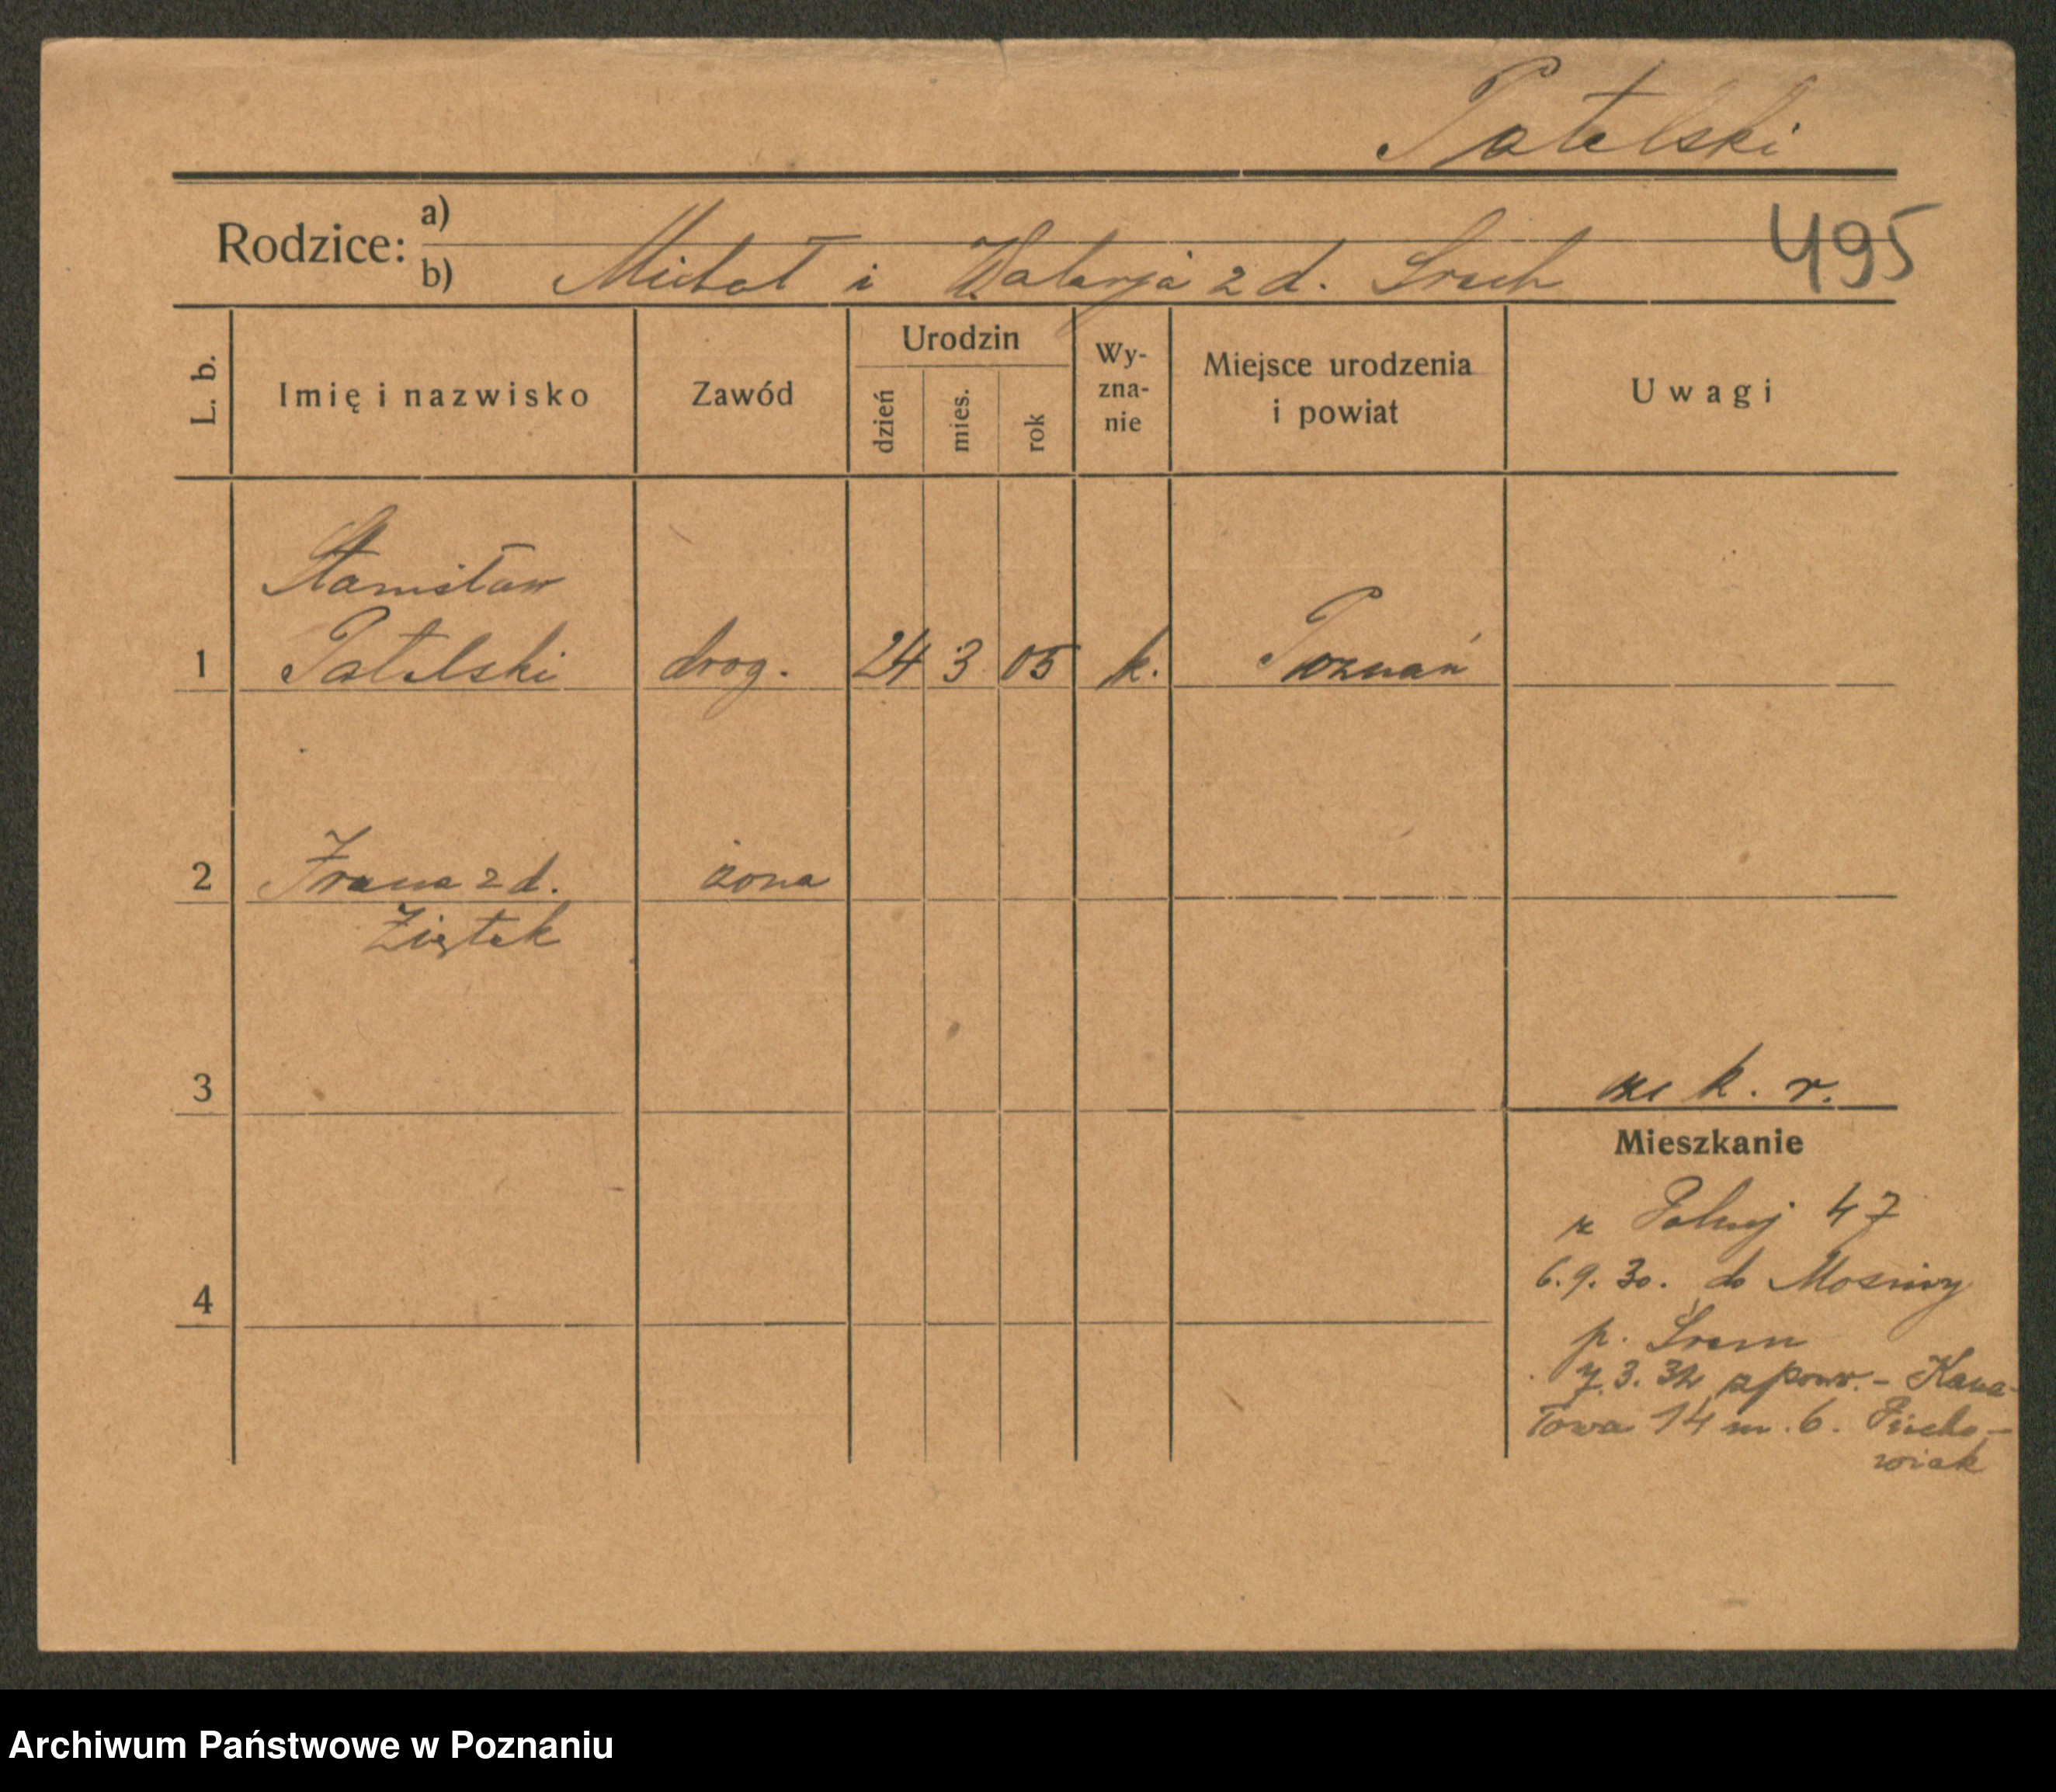 Patelski
Rodzice:
a)
b) Michał i Walerja z d. Srech
495
L. b.
Imię i nazwisko
Zawód
Urodzin
dzień
mies.
rok
Wy-
zna-
nie
Miejsce urodzenia
i powiat
Uwagi
Stanisław
1 Patelski drog. 24 3 05 k. Poznań
2 Irena z d. żona
Ziętek
3
k. r.
Mieszkanie
z Polnej 47
6.9.30. do Mosiny
p. Śrem
7.3.32 z powr. - Kana-
łowa 14 m. 6. Piecho-
wiak
4
Archiwum Państwowe w Poznaniu